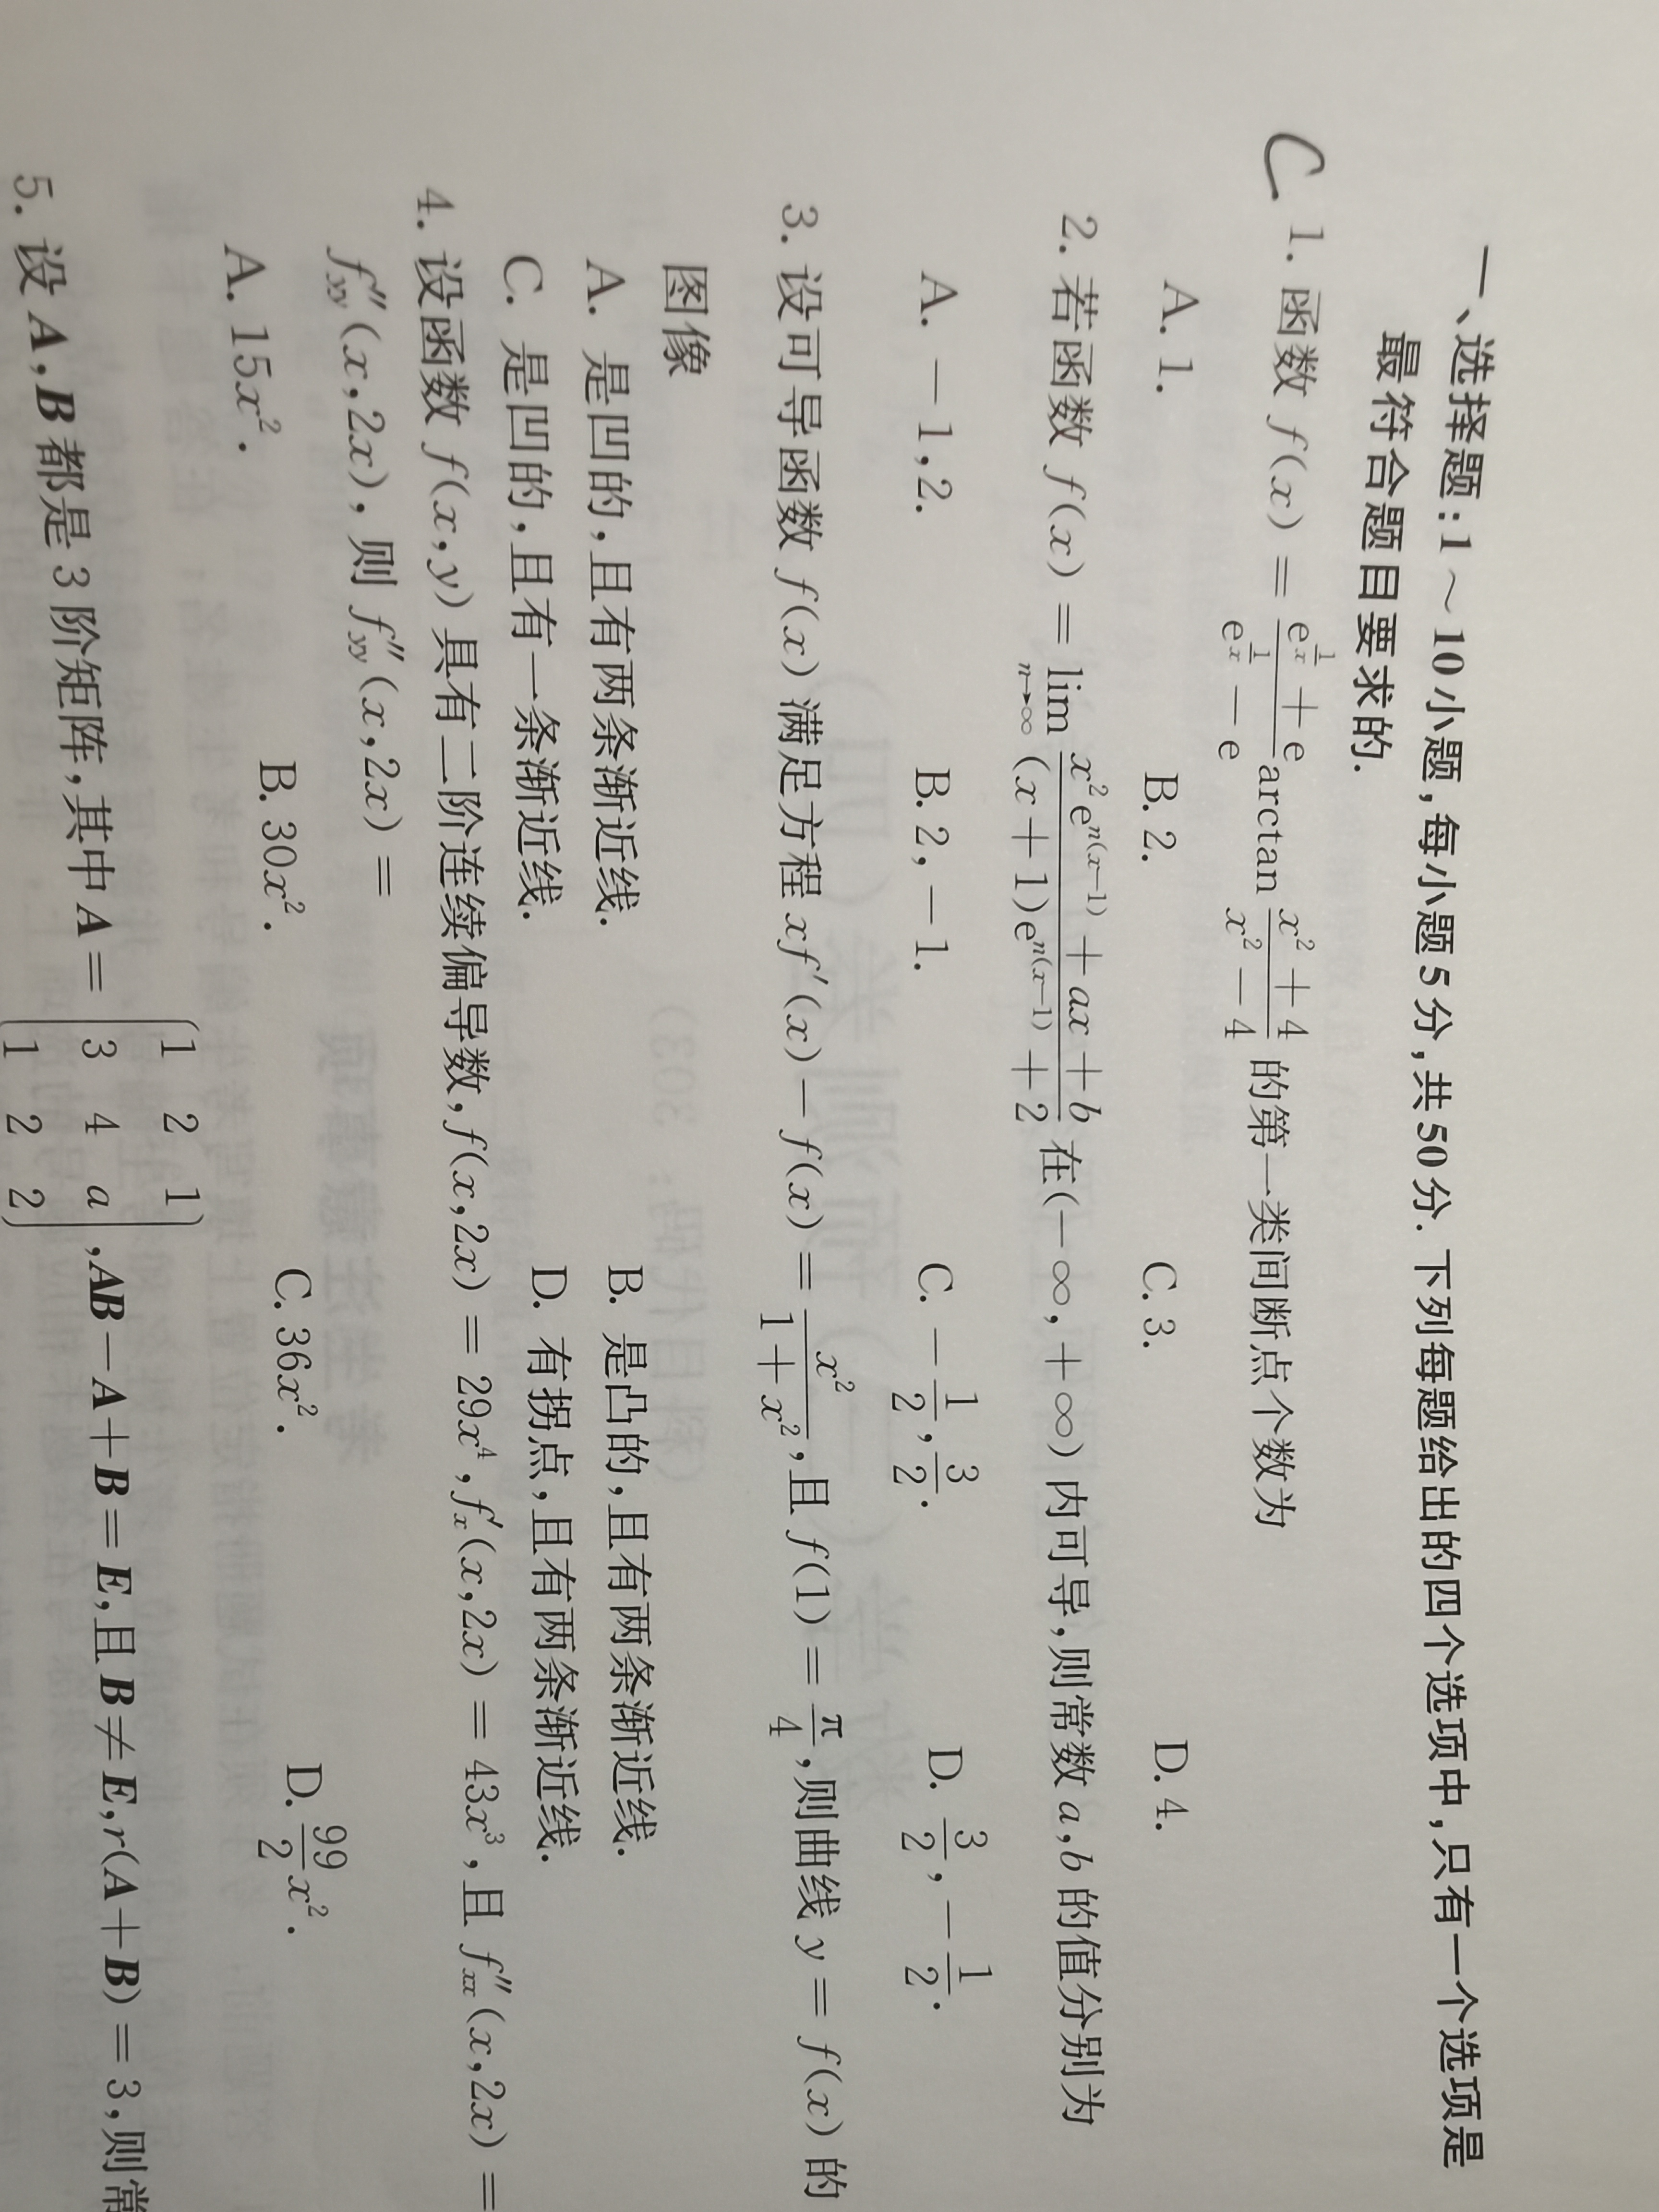 一、选择题:1～10小题,每小题5分,共50分.下列每题给出的四个选项中,只有一个选项是
最符合题目要求的.
C. 1. 函数 f(x) = \frac{e^{\frac{1}{x}}+e}{e^{\frac{1}{x}}-e} arctan \frac{x²+4}{x²-4} 的第一类间断点个数为
A. 1. B. 2. C. 3. D. 4.
2. 若函数 f(x) = \lim_{n→∞} \frac{x²e^{n(x-1)}+ax+b}{(x+1)e^{n(x-1)}+2} 在(-∞,+∞)内可导,则常数a,b的值分别为
A. -1,2. B. 2,-1. C. -\frac{1}{2},\frac{3}{2}. D. \frac{3}{2},-\frac{1}{2}.
3. 设可导函数 f(x)满足方程 xf′(x)-f(x) = \frac{x²}{1+x²},且 f(1) = \frac{π}{4},则曲线 y = f(x)的
图像
A. 是凹的,且有两条渐近线. B. 是凸的,且有两条渐近线.
C. 是凹的,且有一条渐近线. D. 有拐点,且有两条渐近线.
4. 设函数 f(x,y)具有二阶连续偏导数,f(x,2x) = 29x⁴,f′ₓ(x,2x) = 43x³,且 f″ₓₓ(x,2x) =
f″_{yy}(x,2x),则 f″_{yy}(x,2x) =
A. 15x². B. 30x². C. 36x². D. \frac{99}{2}x².
5. 设A,B都是3阶矩阵,其中A = \begin{pmatrix} 1 & 2 & 1 \\ 3 & 4 & a \\ 1 & 2 & 2 \end{pmatrix},AB-A+B=E,且B≠E,r(A+B)=3,则常